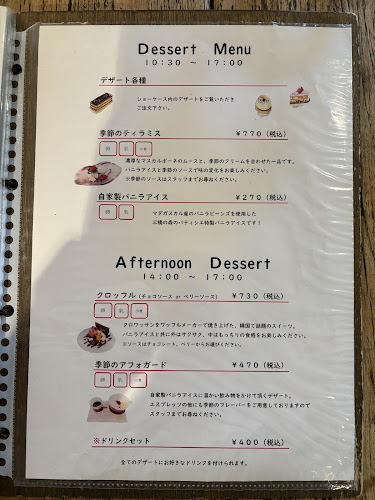 Dessert Menu
10:30 ~ 17:00
デザート各種
ショーケース内のデザートをご覧いただき
ご注文下さい。
季節のティラミス ￥770（税込）
卵 乳 小麦
濃厚なマスカルポーネのムースと、季節のクリームを合わせた一品です。
バニラアイスと季節のソースで味の変化をお楽しみください。
※季節のソースはスタッフまでお尋ねください。
自家製バニラアイス ￥270（税込）
卵 乳
マダガスカル産のバニラビーンズを使用した
三桃の森のパティシエ特製バニラアイスです！
Afternoon Dessert
14:00 ~ 17:00
クロッフル（チョコソース or ベリーソース） ￥730（税込）
卵 乳 小麦
クロワッサンをワッフルメーカーで焼き上げた、韓国で話題のスイーツ。
バニラアイスと共に外はサクサク、中はもっちりの食感をお楽しみください。
※ソースはチョコレート、ベリーからお選びください。
季節のアフォガード ￥470（税込）
卵 乳 小麦
自家製バニラアイスに温かい飲み物をかけて頂くデザート。
エスプレッソの他にも季節のフレーバーをご用意しておりますので
スタッフまでお尋ねください。
※ドリンクセット ￥400（税込）
全てのデザートにお好きなドリンクを付けられます。